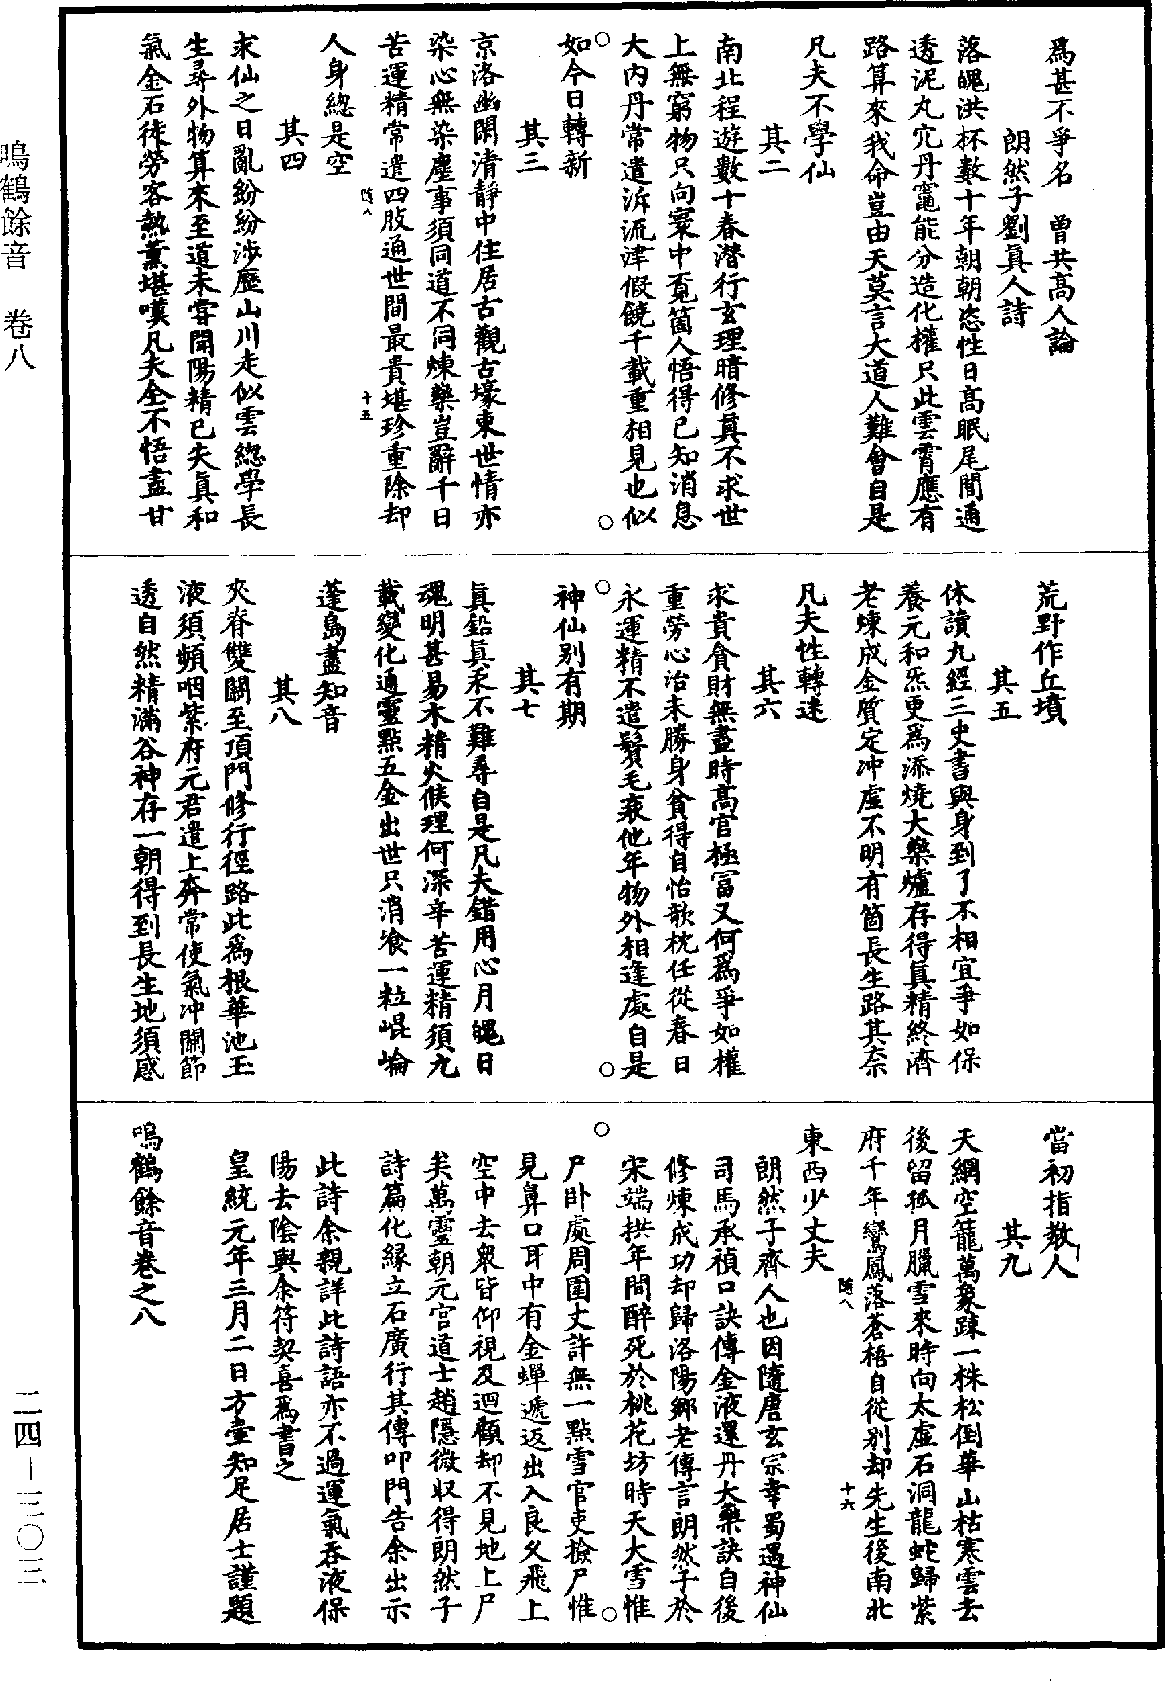 爲甚不爭名　曾共高人論
朗然子劉眞人詩
落魄洪杯數十年朝朝恣性日高眠尾閭通
透泥丸穴丹竈能分造化權只此雲霄應有
路算來我命豈由天莫言大道人難會自是
凡夫不學仙
其二
南北程遊數十春潛行玄理暗修眞不求世
上無窮物只向寰中覓箇人悟得已知消息
大內丹常遣泝流津假饒千載重相見也似
如今日轉新
其三
京洛幽閑清靜中住居古觀古壕東世情亦
染心無染塵事須同道不同煉藥豈辭千日
苦運精常遣四肢通世間最貴堪珍重除却
隨八　十五
人身總是空
其四
求仙之日亂紛紛涉歷山川走似雲總學長
生尋外物算來至道未甞聞陽精已失眞和
氣金石徒勞客熱薰堪嘆凡夫全不悟盡甘
荒野作丘墳
其五
休讀九經三史書與身到了不相宜爭如保
養元和炁更爲添燒大藥爐存得眞精終濟
老煉成金質定冲虛不明有箇長生路其奈
凡夫性轉迷
其六
求貴貪財無盡時高官極冨又何爲爭如權
重勞心治未勝身貧得自怡欹枕任從春日
永運精不遣鬢毛衰他年物外相逢處自是
神仙别有期
其七
眞鉛眞汞不難尋自是凡夫錯用心月魄日
魂明甚易木精火候理何深辛苦運精須九
載變化通靈點五金出世只消飡一粒崐崘
蓬島盡知音
其八
夾脊雙關至頂門修行徑路此爲根華池玉
液須頻咽紫府元君遣上奔常使氣冲關節
透自然精滿谷神存一朝得到長生地須感
當初指教人
其九
天網空籠萬象踈一株松倒華山枯寒雲去
後留孤月臘雪來時向太虛石洞龍蛇歸紫
府千年鸞鳳落蒼梧自從别却先生後南北
隨八　十六
東西少丈夫
朗然子齊人也因隨唐玄宗幸蜀遇神仙
司馬承禎口訣傳金液還丹大藥訣自後
修煉成功却歸洛陽鄉老傳言朗然子於
宋端拱年間醉死於桃花坊時天大雪惟
尸卧處周圍丈許無一點雪官吏撿尸惟
見鼻口耳中有金蟬遞返出入良久飛上
空中去衆皆仰視及迴顧却不見地上尸
矣萬靈朝元宫道士趙隱微收得朗然子
詩篇化緣立石廣行其傳叩門告余出示
此詩余親詳此詩語亦不過運氣吞液保
陽去陰與余符契喜爲書之
皇統元年三月二日方壷知足居士謹題
鳴鶴餘音卷之八
鳴鶴餘音　卷八
二四－三〇三